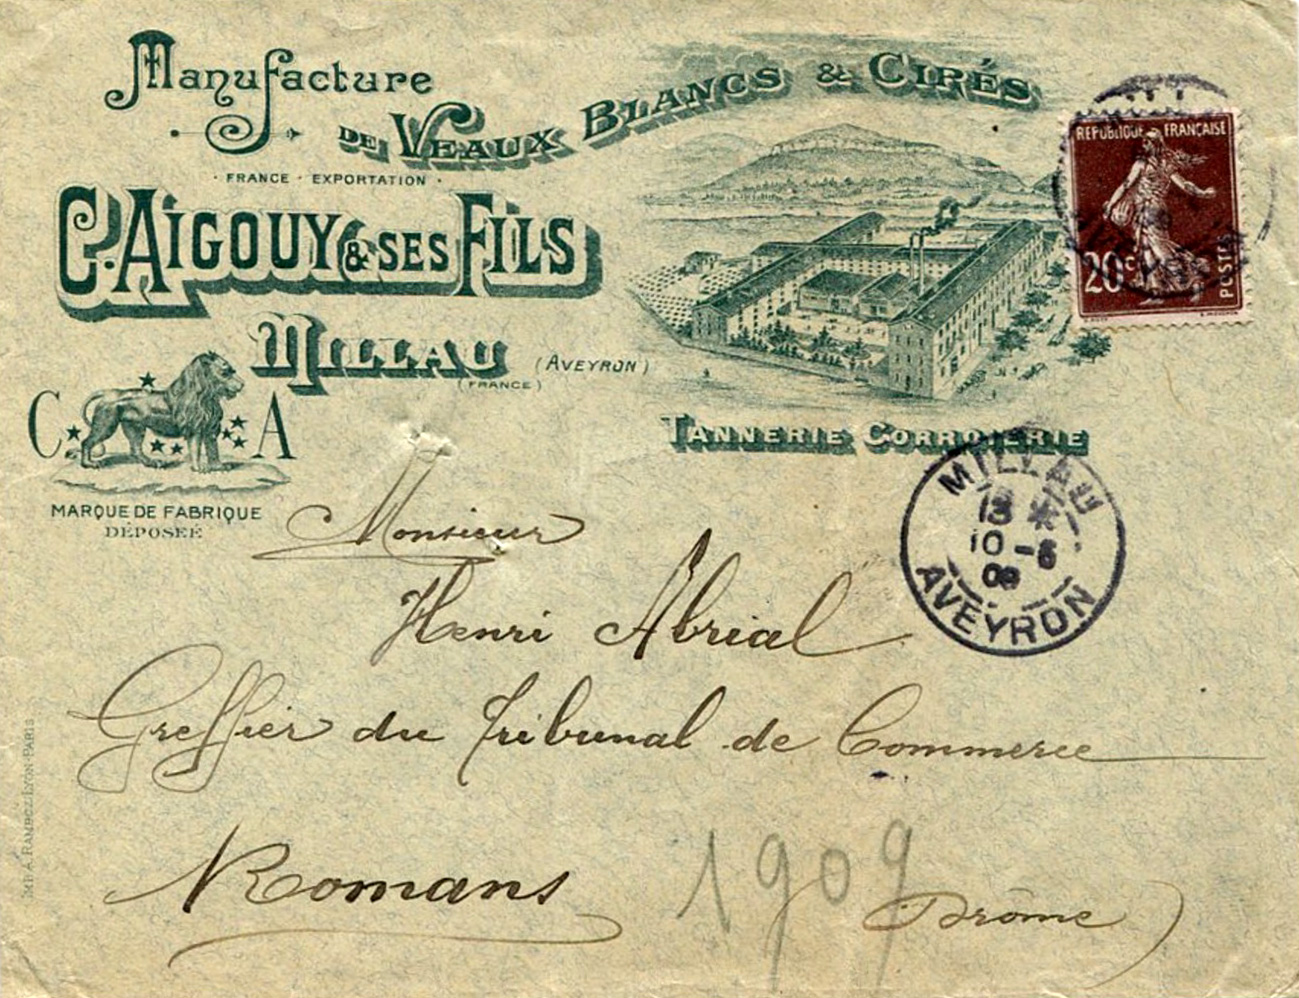 Manufacture
DE VEAUX BLANCS & CIRÉS
· FRANCE · EXPORTATION ·
C. AIGOUY & SES FILS
MILLAU (AVEYRON)
(FRANCE)
C A
MARQUE DE FABRIQUE
DÉPOSÉE
TANNERIE CORROIERIE
REPUBLIQUE FRANÇAISE
20c
POSTES
MILLAU
10 -6
AVEYRON
Monsieur
Henri Abrial
Greffier du Tribunal de Commerce
Romans
1909
Drôme)
IMP. A. RAMBOZ LYON-PARIS